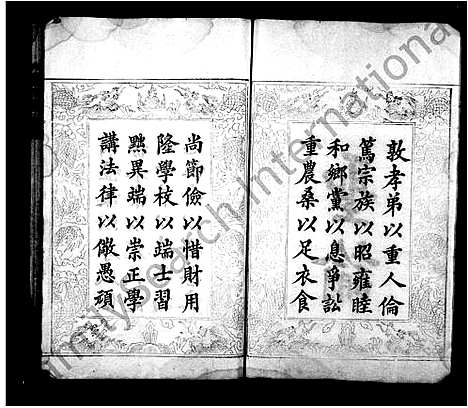 敦孝弟以重人倫
篤宗族以昭雍睦
和鄉黨以息爭訟
重農桑以足衣食
尚節儉以惜財用
隆學校以端士習
黜異端以崇正學
講法律以儆愚頑
FamilySearch International